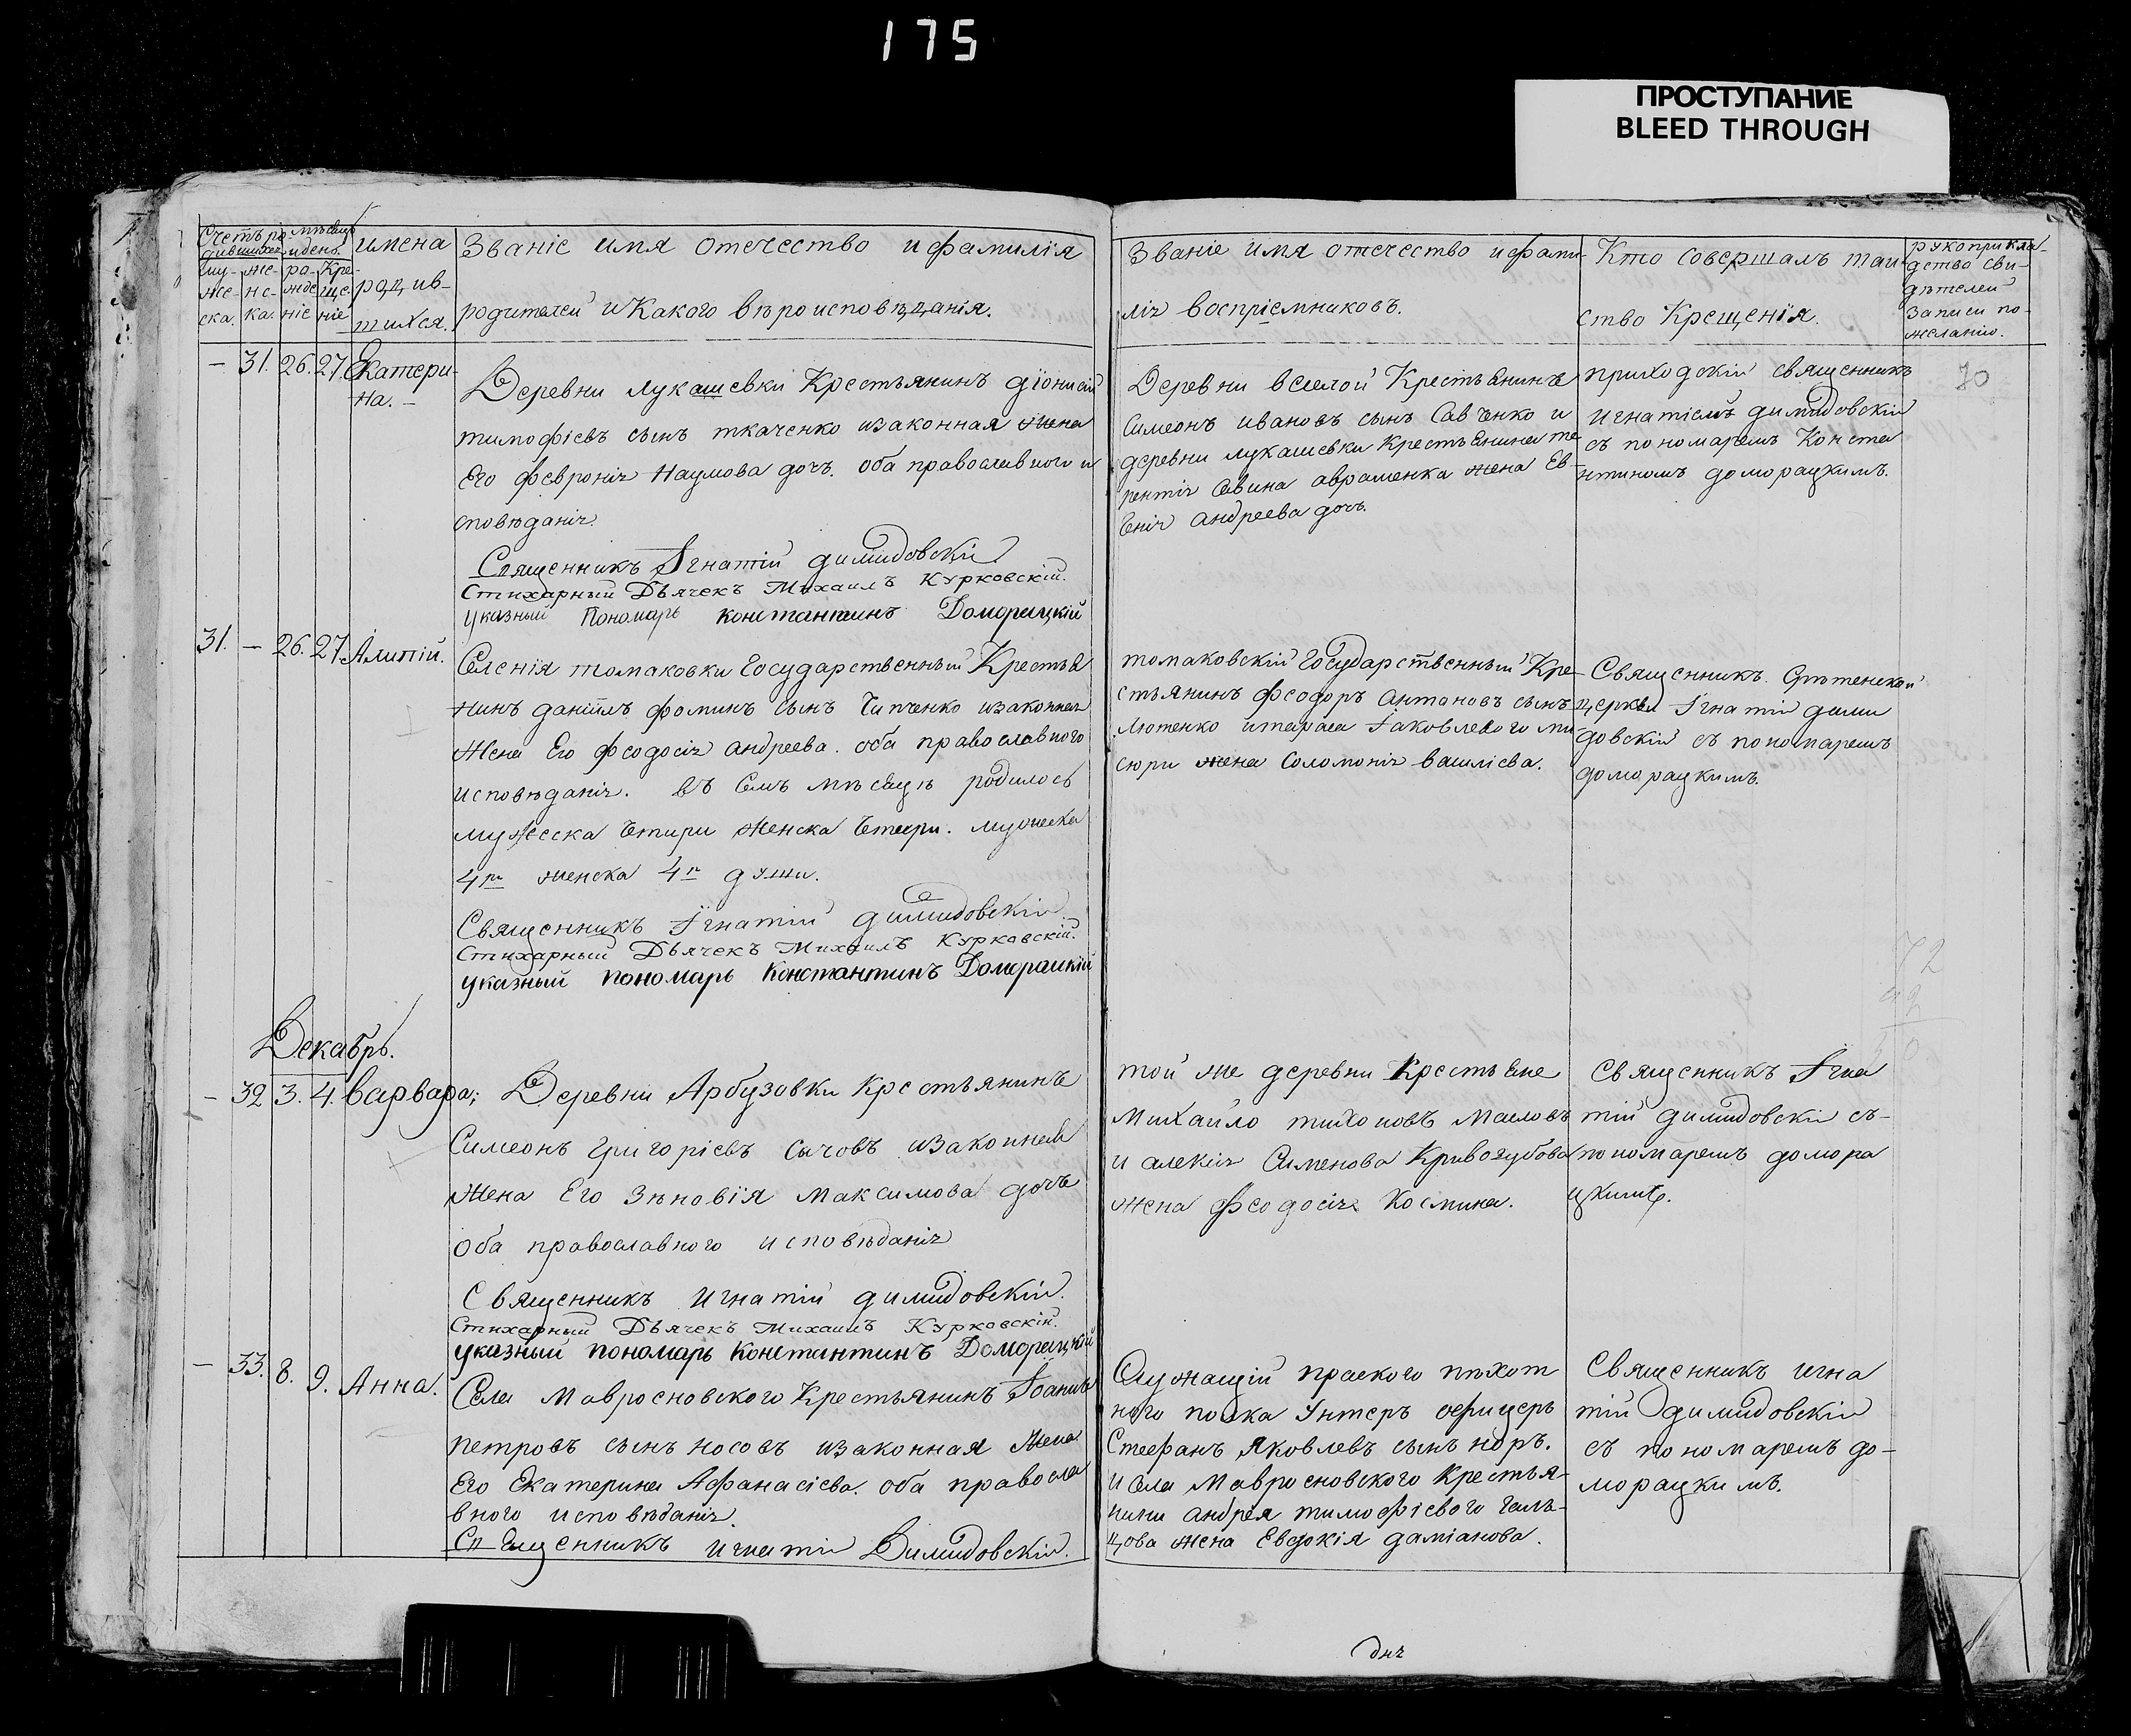 175
ПРОСТУПАНИЕ
BLEED THROUGH
Счетъ ро
дившихся
мѣсяцъ
и день
имена
родив-
шихся.
Званіе имя отечество и фамилія
родителей и Какого вѣроисповѣданія.
Званіе имя отечество и фами-
лія воспріемниковъ.
Кто совершалъ таи-
ство Крещенія.
рукоприкла-
дство сви-
дѣтелей
записи по-
желанію.
му-
же-
ска.
же-
нс-
ка.
ро-
жде
ніе
Кре-
ще-
ніе
— 31. 26. 27. Екатери-
на. —
Деревни лукашевки Крестьянинъ діонисій
тимофіевъ сынъ ткаченко и законная жена
Его февронія Наумова дочь. оба православного и
сповѣданія.
Священникъ Ігнатій димидовскій
Стихарный Дьячекъ Михаилъ Курковскій.
указный Пономарь Константинъ Доморацкій
Деревни веселой Крестьянинъ
Симеонъ ивановъ сынъ Савченко и
деревни лукашевки Крестьянина те
рентія Савина авраменка жена Ев-
генія андреева дочь.
приходскій священникъ
игнатіемъ димидовскій
съ пономаремъ Конста
нтиномъ доморацкимъ.
70
31. — 26. 27. Алипій.
Селенія томаковки Государственный Крестья
нинъ даніилъ фоминъ сынъ Чипченко и законная
жена Его феодосія андреева. оба православного
исповѣданія. въ семъ мѣсяцѣ родилось
мужеска четыри женска четыри. мужеска
4ри женска 4ри души.
Священникъ Ігнатій димидовскій
Стихарный Дьячекъ Михаилъ Курковскій.
указный пономарь Константинъ Доморацкій
томаковскій Государственный Кре-
стьянинъ феодоръ антоновъ сынъ
Лютенко и тараса Іаковлевого ми
сюри жена Соломонія василіева.
Священникъ Срѣтенской
церкви Ігнатій дими
довскій съ пономаремъ
доморацкимъ.
72
Декабрь.
— 32 3. 4. варвара;
Деревни Арбузовки Крестьянинъ
Симеонъ Григоріевъ Сычовъ и законная
жена Его Зѣновія Максимова дочь
Оба православного исповѣданія
Священникъ Игнатій димидовскій.
Стихарный Дьячекъ Михаилъ Курковскій.
указный пономарь Константинъ Доморацкій
той же деревни Крестьяне
Михайло тихоновъ Масловъ
и алексія Сименова Кривозубова
жена феодосія Космина.
Священникъ Ігна
тій димидовскій съ-
пономаремъ домора
цкимъ.
— 33. 8. 9. Анна.
Села Мавросновского Крестьянинъ Іоаннъ
петровъ сынъ носовъ и законная жена
Его Екатерина Афанасіева. оба правосла
вного исповѣданія.
Священникъ Игнатій Димидовскій.
Служащій праского пѣхот
ного полка Унтеръ офицеръ
Стефанъ Яковлевъ сынъ норъ.
и села Мавросновского Крестья-
нина андрея тимофіевого галь-
цова жена Евдокія даміанова.
Священникъ игна
тій димидовскій
съ пономаремъ до-
морацкимъ.
дня